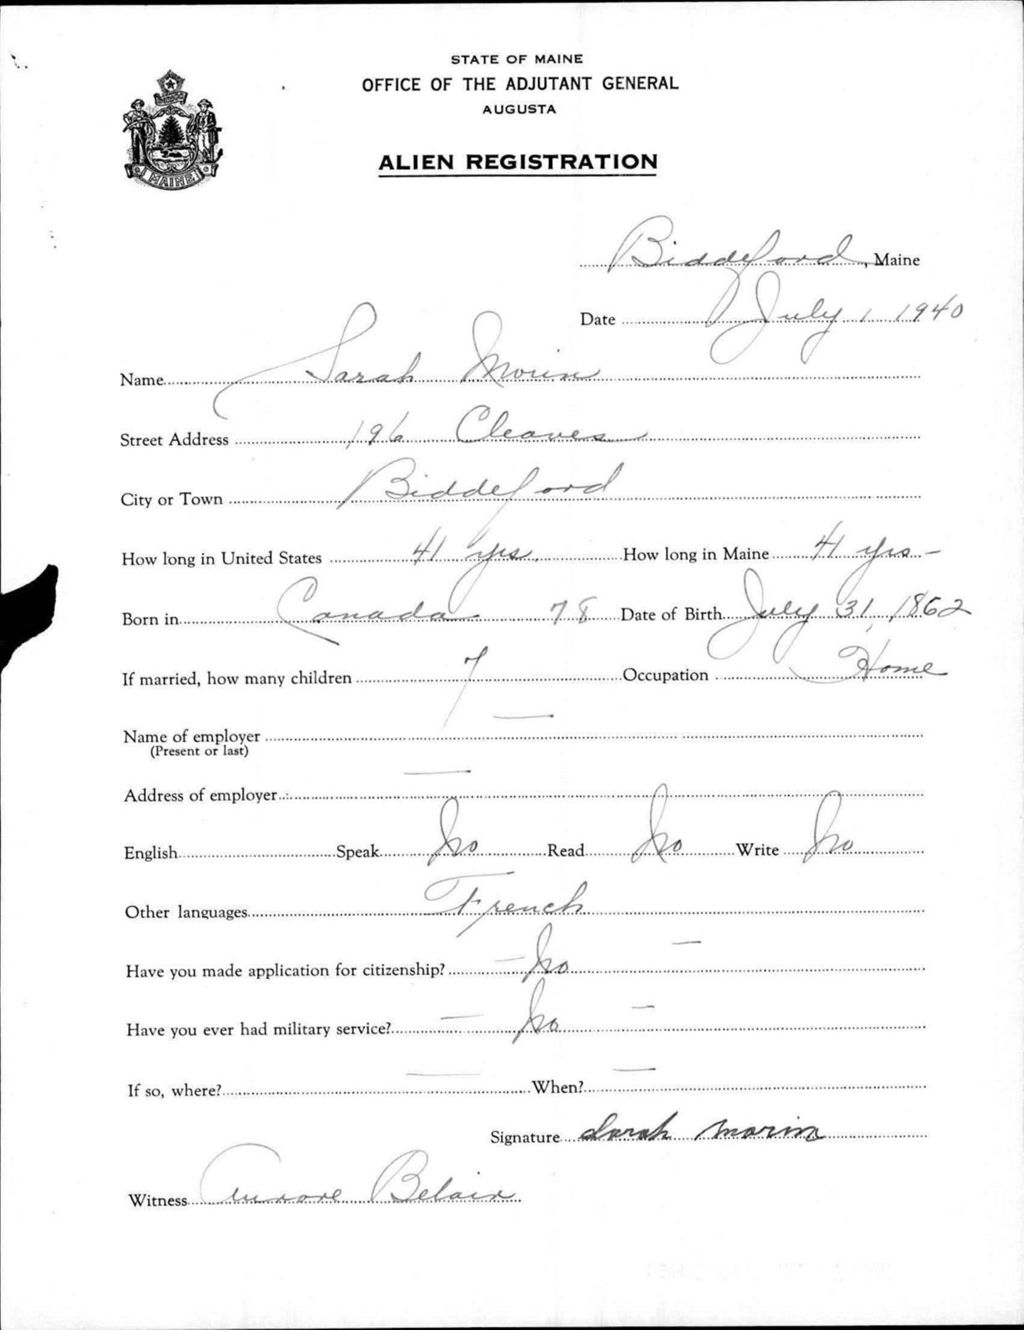 STATE OF MAINE
OFFICE OF THE ADJUTANT GENERAL
AUGUSTA
ALIEN REGISTRATION
MAINE
Biddeford, Maine
Date July 1, 1940
Name Sarah Morin
Street Address 196 Cleaves
City or Town Biddeford
How long in United States 41 yrs. How long in Maine 41 yrs -
Born in Canada 78 Date of Birth July 31, 1862
If married, how many children 7 Occupation Home
Name of employer —
(Present or last)
Address of employer —
English Speak No Read No Write No
Other languages French
Have you made application for citizenship? — No —
Have you ever had military service? — No —
If so, where? — When? —
Signature Sarah Morin
Witness Aurore Belair